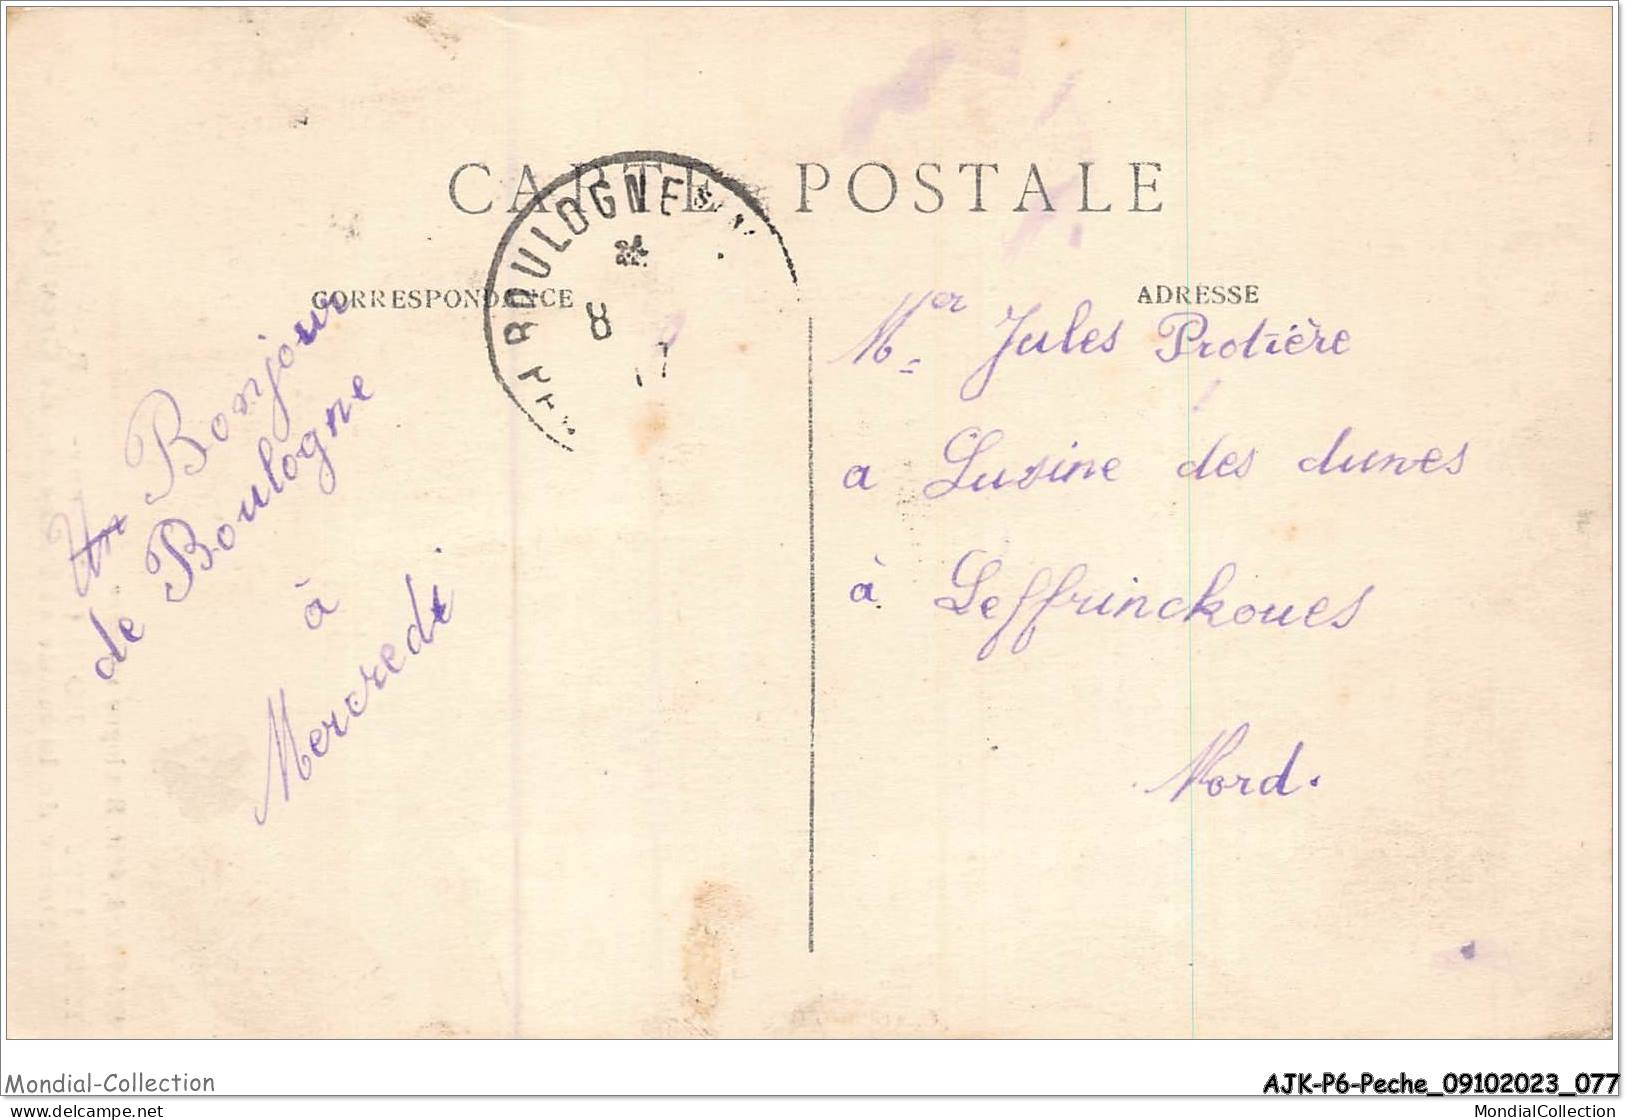 CARTE POSTALE
BOULOGNE S. M.
8
CORRESPONDANCE
ADRESSE
Un Bonjour
de Boulogne
à
Mercredi
Mer Jules Protière
a Lusine des dunes
à Leffrinckoues
Nord.
Mondial-Collection
AJK-P6-Peche_09102023_077
www.delcampe.net
MondialCollection